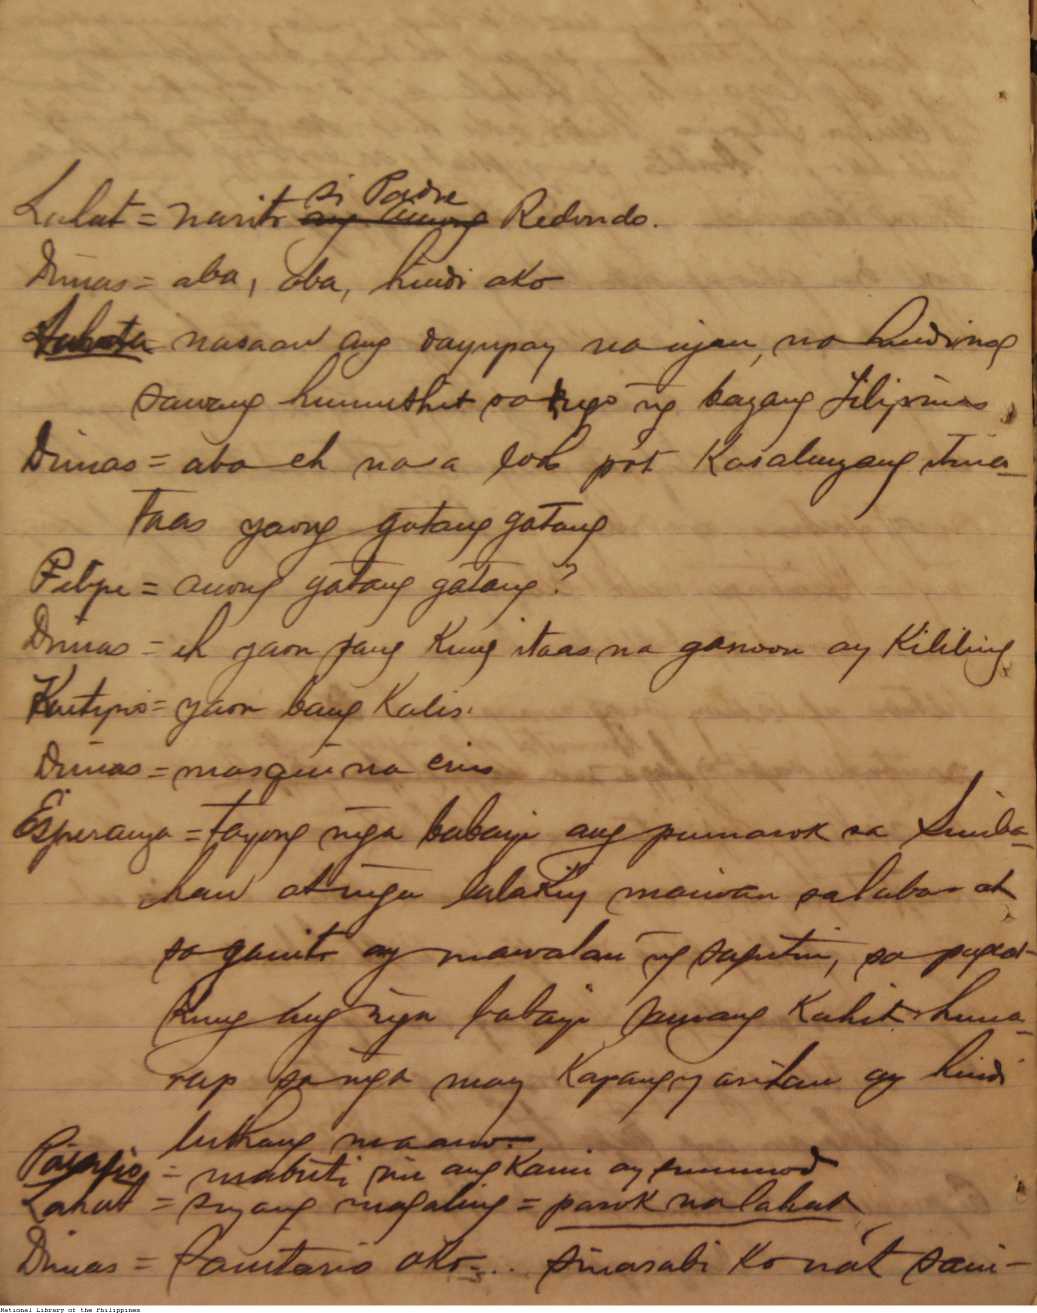 Lahat = narito si Padre Redondo.
Dimas = aba, aba, hindi ako
nasaan ang dayupay na iyan, na hindi nag
sawang humithit sa dugo ng bayang Filipinas
Dimas = aba eh nasa loob po't kasaluyang itina-
taas yaong gatang gatang
Felipe = anong gatang gatang?
Dimas = eh yaon pang kung itaas na ganoon ay kililing
= yaon bang kalis.
Dimas = masquin na cris
Esperanza = tayong mga babayi ang pumasok sa Simba-
han at mga lalaki'y maiwan sa labas at
sa ganito ay mawalan ng saputin, sa pagkat
kung ang mga babayi sawang kahit huma-
rap sa mga may kapangyarihan ay hindi
lubhang maano.
= mabuti nu ang kami ay sumunod
Lahat = siyang magaling = pasok na lahat
Dimas = Sanitario ako... sinasabi ko na't sani-
National Library of the Philippines